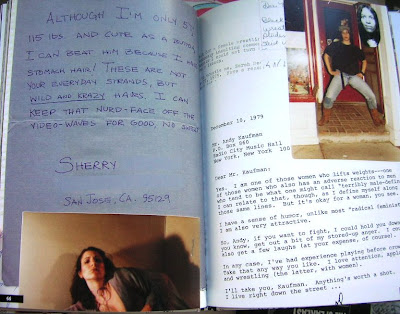 ALTHOUGH I'M ONLY 5'
115 LBS. AND CUTE AS A BUTTON
I CAN BEAT HIM BECAUSE I HAVE
STOMACH HAIR! THESE ARE NOT
YOUR EVERYDAY STRANDS, BUT
WILD AND KRAZY HAIRS. I CAN
KEEP THAT NURD-FACE OFF THE
VIDEO-WAVES FOR GOOD, NO SWEAT
SHERRY
SAN JOSE, CA. 95129
66
December 10, 1979
Mr. Andy Kaufman
P.O. Box 060
Radio City Music Hall
New York, New York 100
Dear Mr. Kaufman:
Yes. I am one of those women who lifts weights---one
of those women who also has an adverse reaction to men
who tend to be what one might call "terribly male-defin
I can relate to that, though, as I define myself along
those same lines. But it's okay for a woman, you see.
I have a sense of humor, unlike most "radical feminist
I am also very attractive.
So, Andy, if you want to fight, I could hold you down
you know, get out a bit of my stored-up anger. I coul
also get a few laughs (at your expense, of course).
In any case, I've had experience playing before crow
Take that any way you like. I love attention, appl
and wrestling (the latter, with women).
I'll take you, Kaufman. Anything's worth a shot.
I live right down the street ...